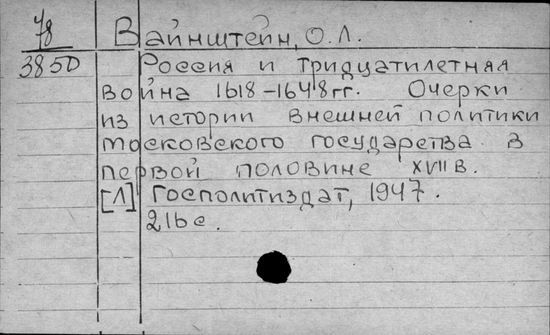 78 Вайнштейн, О.Л.
3850 Россия и Тридцатилетняя
война 1618-1648гг. Очерки
из истории внешней политики
московского государства в
первой половине XVII в.
[Л] Госполитиздат, 1947.
216 с.